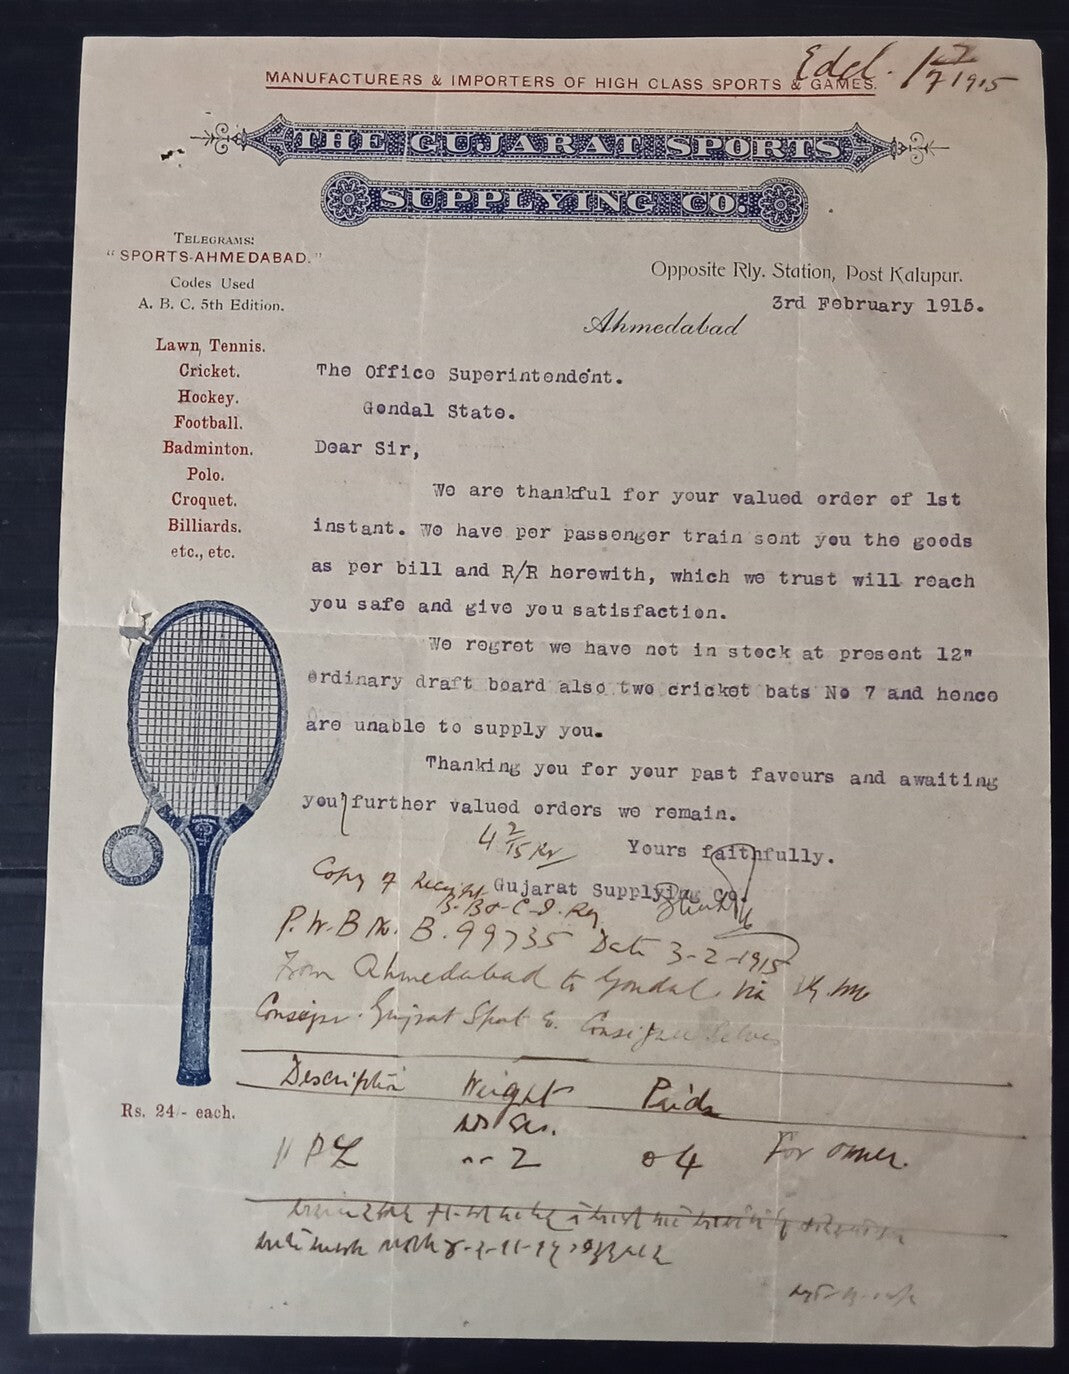 Edel. 1/2/1915
MANUFACTURERS & IMPORTERS OF HIGH CLASS SPORTS & GAMES.
THE GUJARAT SPORTS
SUPPLYING CO.
TELEGRAMS:
"SPORTS-AHMEDABAD."
Codes Used
A. B. C. 5th Edition.
Opposite Rly. Station, Post Kalupur.
3rd February 1915.
Ahmedabad
Lawn, Tennis.
Cricket.
Hockey.
Football.
Badminton.
Polo.
Croquet.
Billiards.
etc., etc.
The Office Superintendent.
Gondal State.
Dear Sir,
We are thankful for your valued order of 1st
instant. We have per passenger train sent you the goods
as per bill and R/R herewith, which we trust will reach
you safe and give you satisfaction.
We regret we have not in stock at present 12"
ordinary draft board also two cricket bats No 7 and hence
are unable to supply you.
Thanking you for your past favours and awaiting
you further valued orders we remain.
Yours faithfully.
Gujarat Supplying Co.
Copy of Receipt
B. B & C. I. Ry
P. W. B No. B. 99735 Date 3-2-1915
From Ahmedabad to Gondal. Via
Gujrat Sport
Description Weight Paids
11 P 2 04 For owner.
Rs. 24/- each.